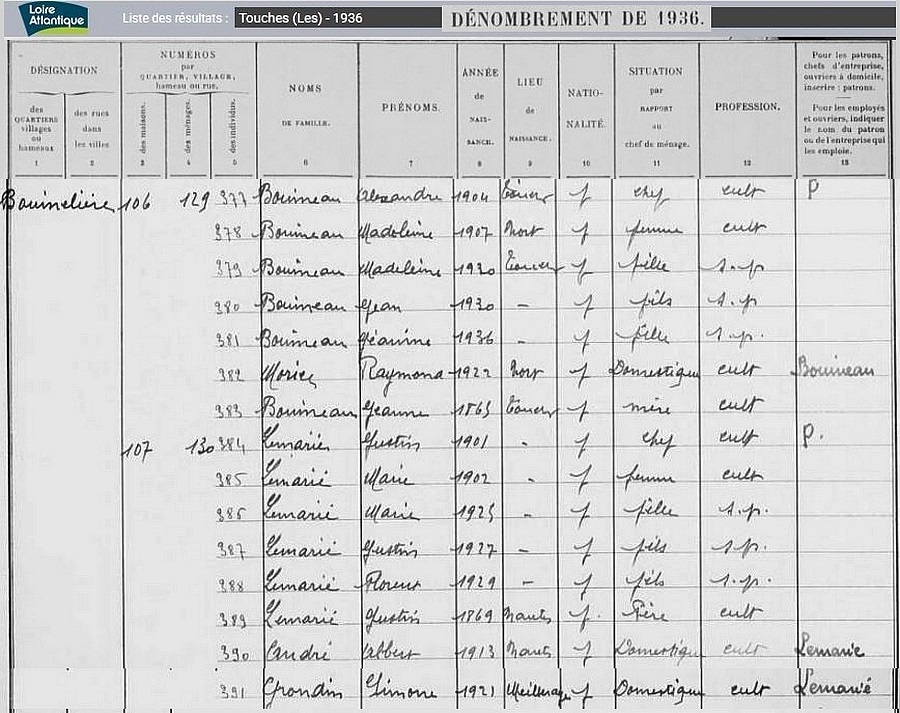 Loire Atlantique Liste des résultats : Touches (Les) - 1936 DÉNOMBREMENT DE 1936.
DÉSIGNATION
des QUARTIERS villages ou hameaux
1
des rues dans les villes
2
NUMÉROS par QUARTIER, VILLAGE, hameau ou rue.
des maisons.
3
des ménages.
4
des individus.
5
NOMS DE FAMILLE.
6
PRÉNOMS.
7
ANNÉE de NAISSANCE.
8
LIEU de NAISSANCE.
9
NATIONALITÉ.
10
SITUATION par RAPPORT au chef de ménage.
11
PROFESSION.
12
Pour les patrons, chefs d'entreprise, ouvriers à domicile, inscrire : patrons.
Pour les employés et ouvriers, indiquer le nom du patron ou de l'entreprise qui les emploie.
13
106 129 377 Bouineau Alexandre 1904 f chef cult P
378 Bouineau Madeleine 1907 Nort f femme cult
379 Bouineau Madeleine 1930 f fille s.p
380 Bouineau Jean 1930 - f fils s.p
381 Bouineau Jéanine 1936 - f fille s.p.
382 Morice Raymond 1922 Nort f Domestique cult Bouineau
383 Bouineau Jeanne 1865 f mère cult
107 130 384 Lemarié Justin 1901 - f chef cult P.
385 Lemarié Marie 1902 - f femme cult
386 Lemarié Marie 1925 - f fille s.p.
387 Lemarié Justin 1927 - f fils s.p.
388 Lemarié Florent 1929 - f fils s.p.
389 Lemarié Justin 1869 f. Père cult
390 Albert 1913 f Domestique cult Lemarié
391 Grondin Simone 1921 Meilleraye f Domestique cult Lemarié